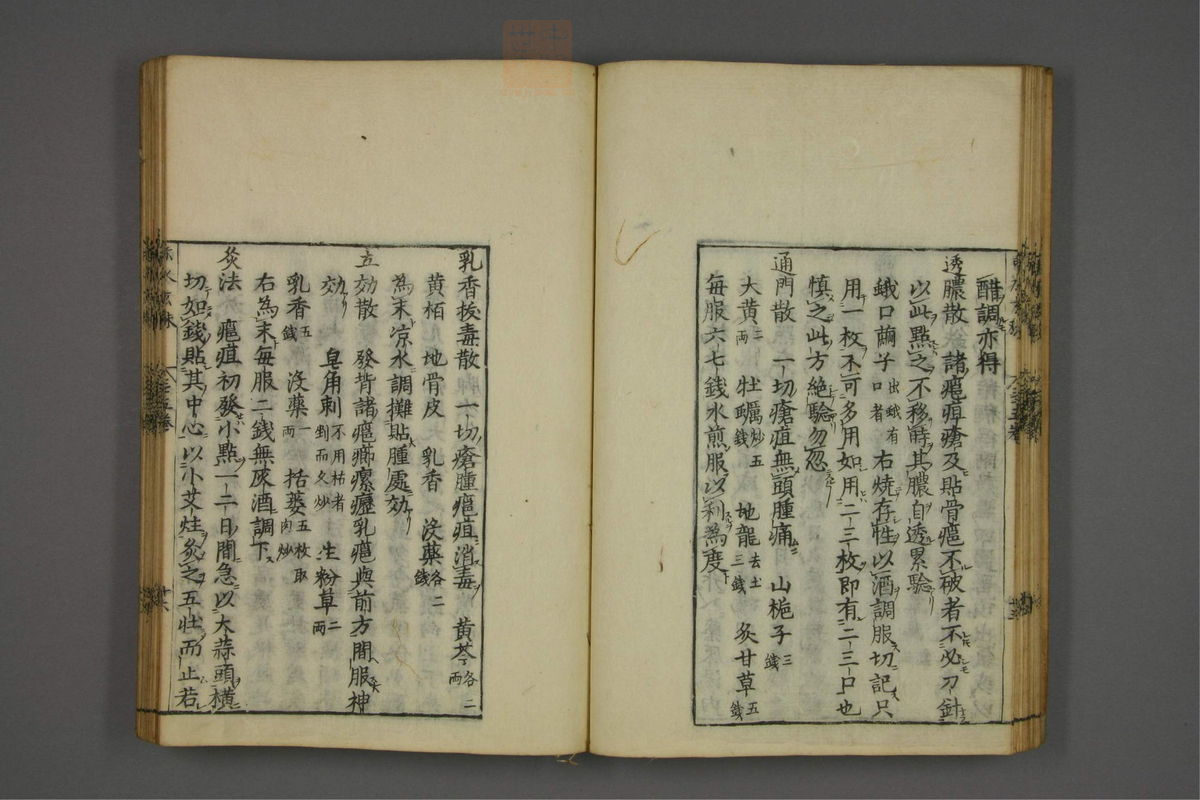 醋調亦得
透膿散 諸癰疽瘡及貼骨癰不破者不必刀針
以此點之不移時其膿自透累驗
蛾口繭子出蛾有口者 右燒存性以酒調服切記只
用一枚不可多用如用二三枚即有二三口也
慎之此方絕驗勿忽
通門散 一切瘡疽無頭腫痛 山梔子三錢
大黃二兩 牡蠣炒五錢 地龍去土三錢 炙甘草五錢
每服六七錢水煎服以利為度
乳香拔毒散 一切瘡腫癰疽消毒 黃芩各二兩
黃栢 地骨皮 乳香 沒藥各二錢
為末涼水調攤貼腫處効
立効散 發背諸癰癤瘰癧乳癰與前方間服神
効 皂角刺不用枯者剉而久炒 生粉草二兩
乳香五錢 沒藥一兩 括蔞五枚取肉炒
右為末每服二錢無灰酒調下
灸法 癰疽初發小點一二日間急以大蒜頭橫
切如錢貼其中心以小艾炷灸之五壯而止若